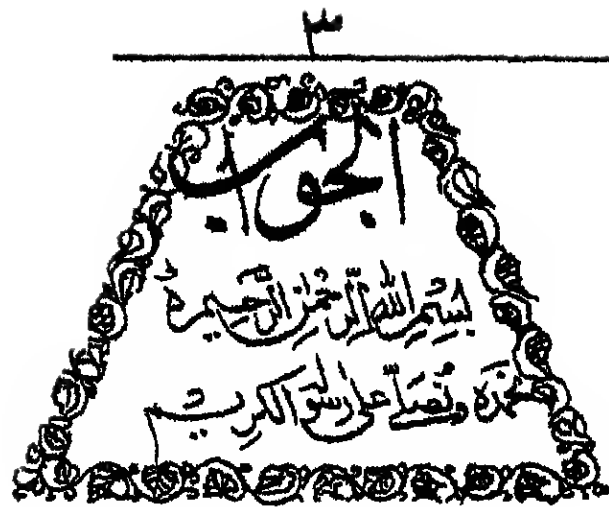 ۳
الجواب
بِسْمِ اللهِ الرَّحْمٰنِ الرَّحِيْمِ
نحمدہ ونصلی علیٰ رسولہ الکریم